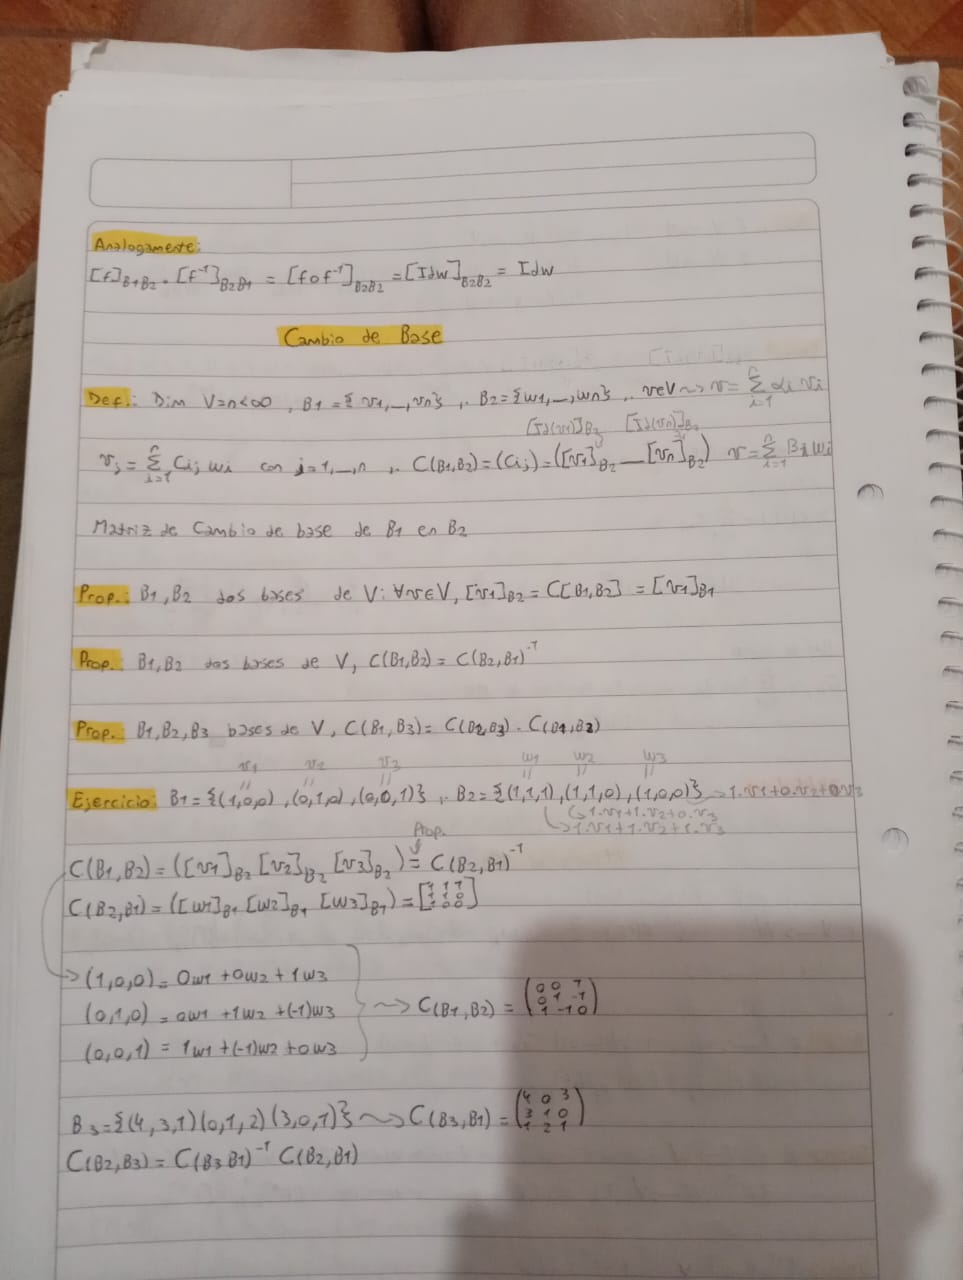 Analogamente:
[f]B1B2 . [f⁻¹]B2B1 = [fof⁻¹]B2B2 = [Idw]B2B2 = Idw
Cambio de Base
Def.: Dim V=n<∞, B1={v1,_,vn} ,. B2={w1,_,wn} ,. v∈V ~> v= Σⁿᵢ₌₁ αi vi
[Id(v1)]B2 [Id(vn)]B2
vj = Σⁿᵢ₌₁ Cij wi con j=1,_,n ,. C(B1,B2)=(Cij)=([v1]B2 __ [vn]B2) v= Σⁿᵢ₌₁ Bi wi
Matriz de Cambio de base de B1 en B2
Prop.: B1,B2 dos bases de V: ∀v∈V, [v1]B2 = C[B1,B2] = [v1]B1
Prop.: B1,B2 dos bases de V, C(B1,B2)= C(B2,B1)⁻¹
Prop.: B1,B2,B3 bases de V, C(B1,B3)= C(B2,B3) . C(B1,B2)
v1 v2 v3 w1 w2 w3
Ejercicio: B1={(1,0,0),(0,1,0),(0,0,1)} ,. B2={(1,1,1),(1,1,0),(1,0,0)} -> 1.v1+0.v2+0v3
-> 1.v1+1.v2+0.v3
-> 1.v1+1.v2+1.v3
Prop.
C(B1,B2)=([v1]B2 [v2]B2 [v3]B2) = C(B2,B1)⁻¹
C(B2,B1)=([w1]B1 [w2]B1 [w3]B1)=[1 1 1
1 1 0
1 0 0]
(1,0,0)= 0w1 +0w2 +1w3
(0,1,0)= 0w1 +1w2 +(-1)w3 ~> C(B1,B2) = (0 0 1
0 1 -1
1 -1 0)
(0,0,1)= 1w1 +(-1)w2 +0w3
B3={(4,3,1)(0,1,2)(3,0,1)} ~> C(B3,B1)=(4 0 3
3 1 0
1 2 1)
C(B2,B3)= C(B3 B1)⁻¹ C(B2,B1)